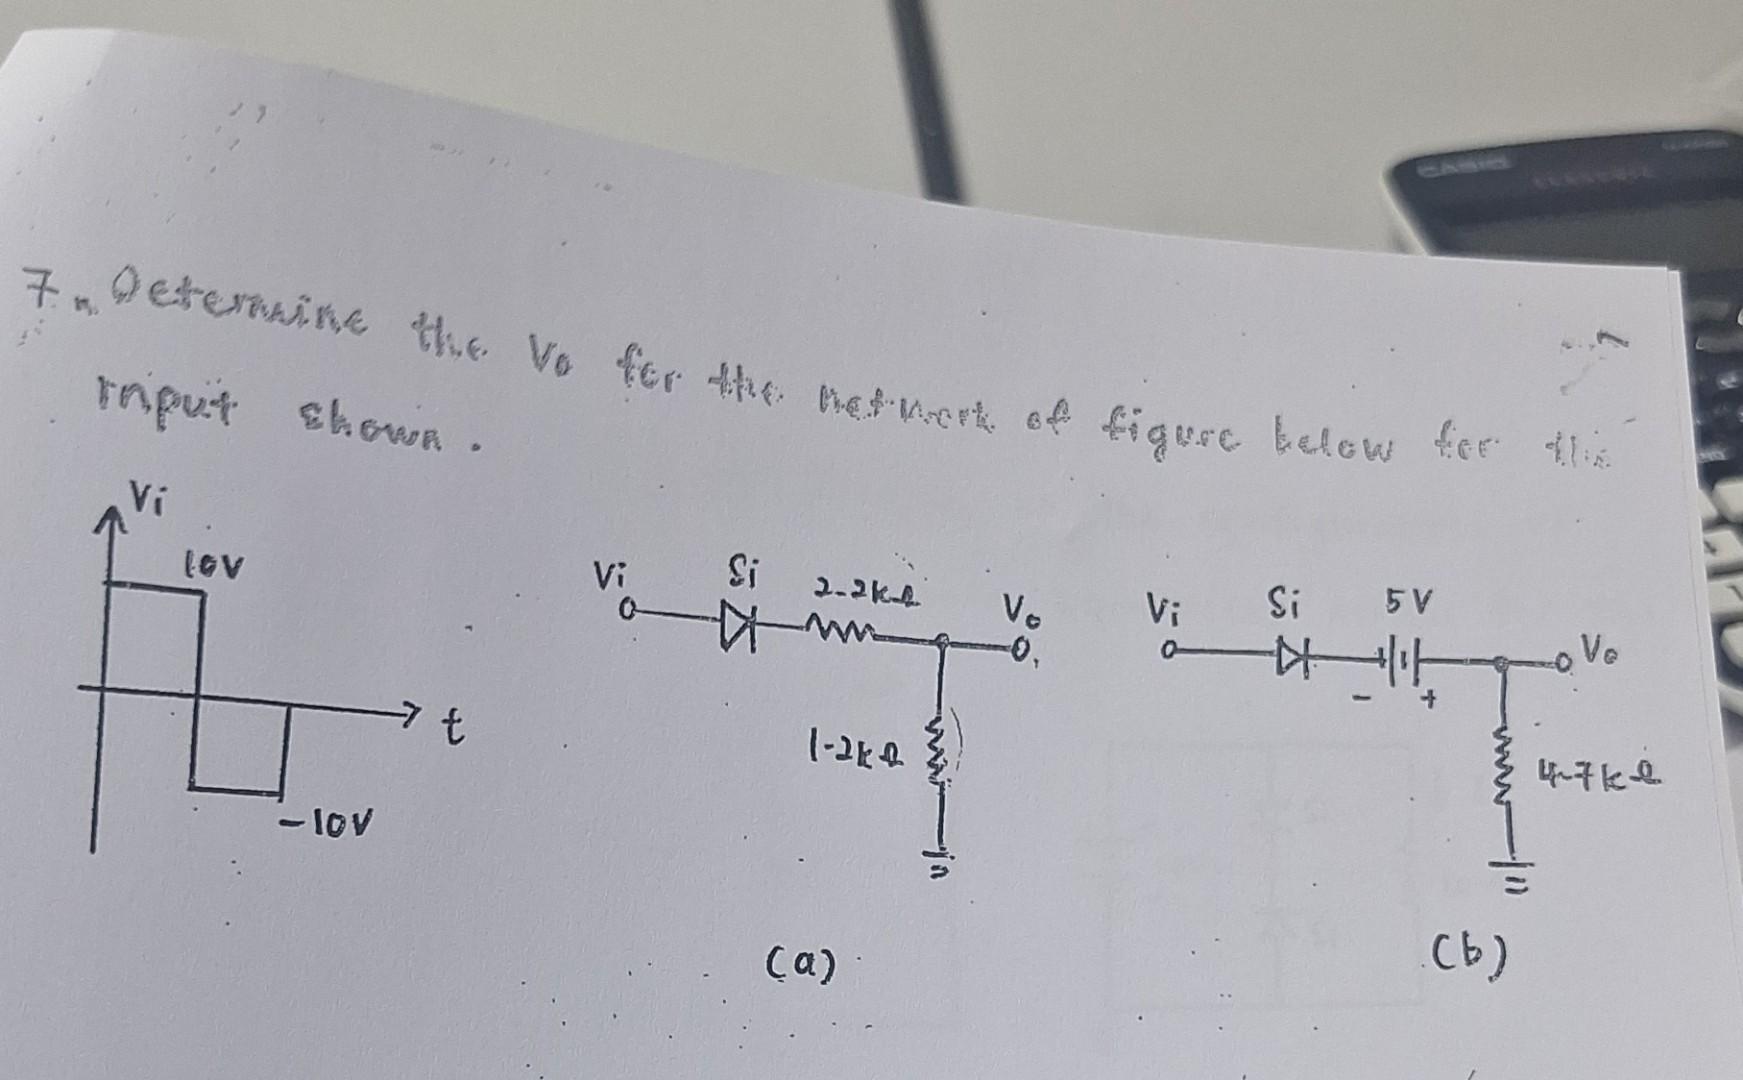 7. Determine the Vo for the network of figure below for the
input shown.
Vi
10V
t
-10V
Vi
Si
2-2kΩ
Vo
1-2kΩ
(a)
Vi
Si
5V
Vo
- +
4-7kΩ
(b)
CASIO